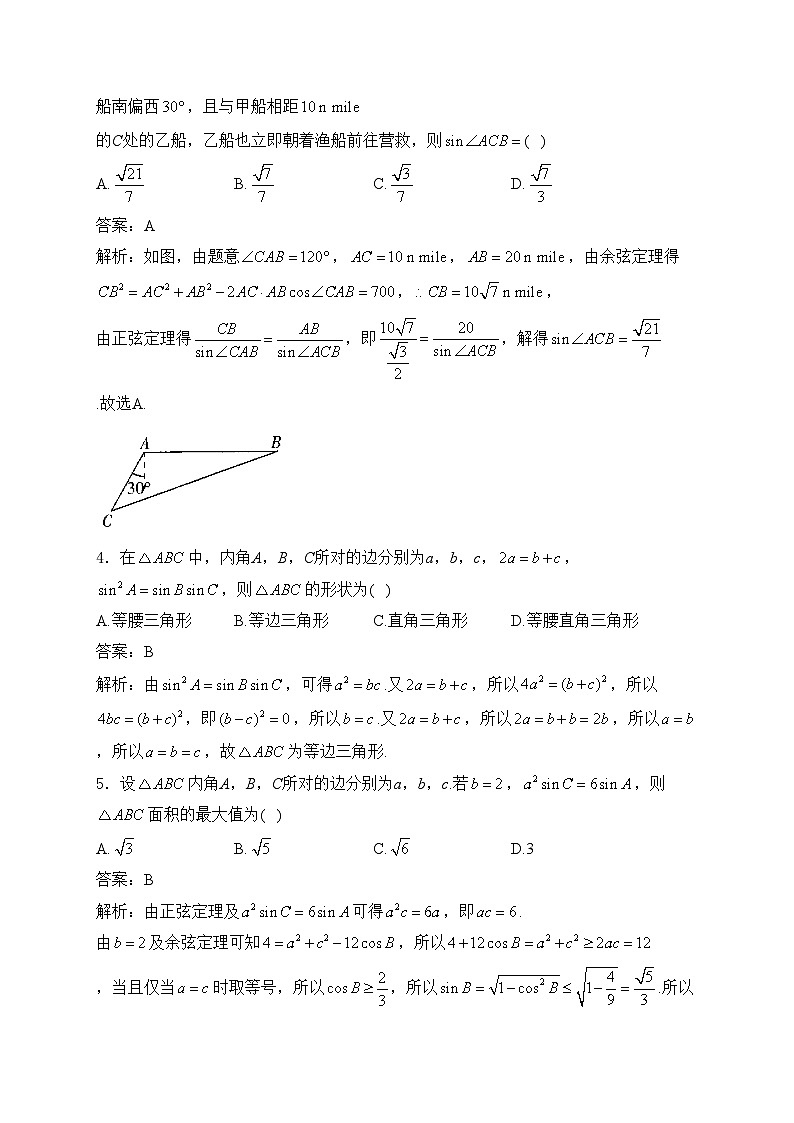 船南偏西30°，且与甲船相距10 n mile
的C处的乙船，乙船也立即朝着渔船前往营救，则sin∠ACB=( )
A. √21/7 B. √7/7 C. √3/7 D. √7/3
答案：A
解析：如图，由题意∠CAB=120°，AC=10 n mile，AB=20 n mile，由余弦定理得
CB²=AC²+AB²−2AC·ABcos∠CAB=700，∴CB=10√7 n mile，
由正弦定理得CB/sin∠CAB=AB/sin∠ACB，即10√7/(√3/2)=20/sin∠ACB，解得sin∠ACB=√21/7
.故选A.
A B
30°
C
4．在△ABC中，内角A，B，C所对的边分别为a，b，c，2a=b+c，
sin²A=sinBsinC，则△ABC的形状为( )
A.等腰三角形 B.等边三角形 C.直角三角形 D.等腰直角三角形
答案：B
解析：由sin²A=sinBsinC，可得a²=bc.又2a=b+c，所以4a²=(b+c)²，所以
4bc=(b+c)²，即(b−c)²=0，所以b=c.又2a=b+c，所以2a=b+b=2b，所以a=b
，所以a=b=c，故△ABC为等边三角形.
5．设△ABC内角A，B，C所对的边分别为a，b，c.若b=2，a²sinC=6sinA，则
△ABC面积的最大值为( )
A. √3 B. √5 C. √6 D.3
答案：B
解析：由正弦定理及a²sinC=6sinA可得a²c=6a，即ac=6.
由b=2及余弦定理可知4=a²+c²−12cosB，所以4+12cosB=a²+c²≥2ac=12
，当且仅当a=c时取等号，所以cosB≥2/3，所以sinB=√(1−cos²B)≤√(1−4/9)=√5/3.所以